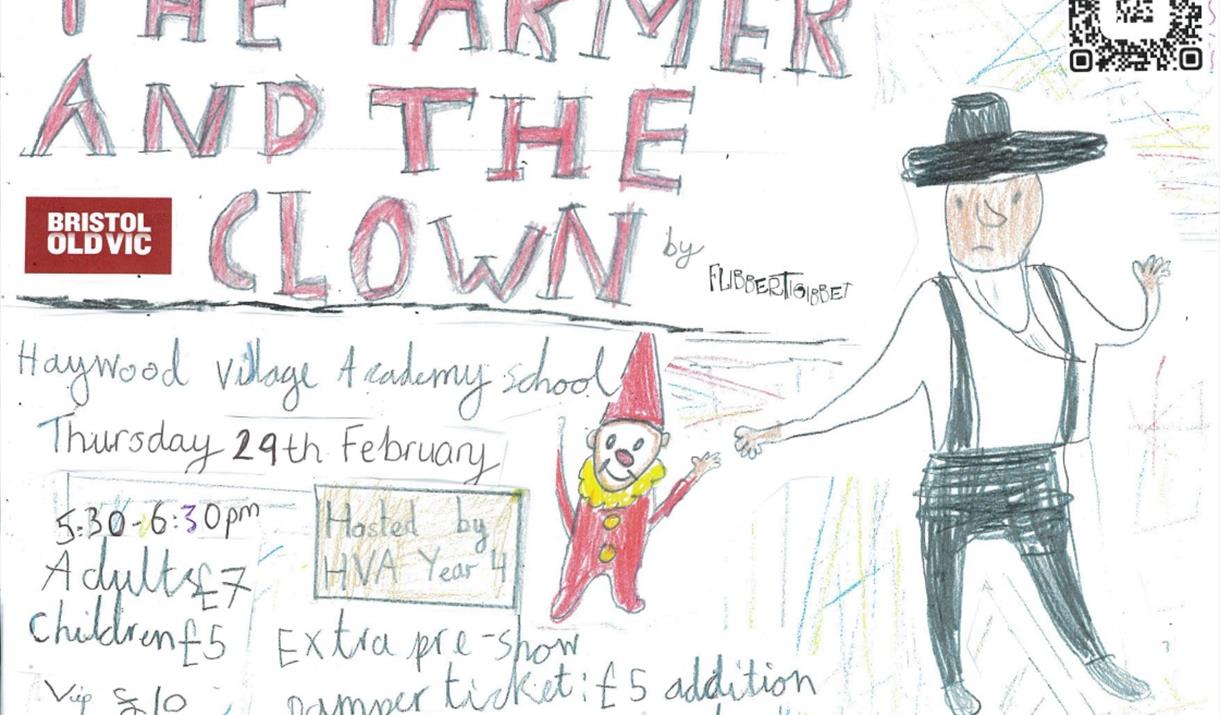 THE FARMER
AND THE
CLOWN
by
FLIBBERTIGIBBET
BRISTOL
OLD VIC
Haywood Village Academy School
Thursday 29th February
5:30-6:30pm
Adults £7
Children £5
Vip £10
Hosted by
HVA Year 4
Extra pre-show
pamper ticket: £5 addition